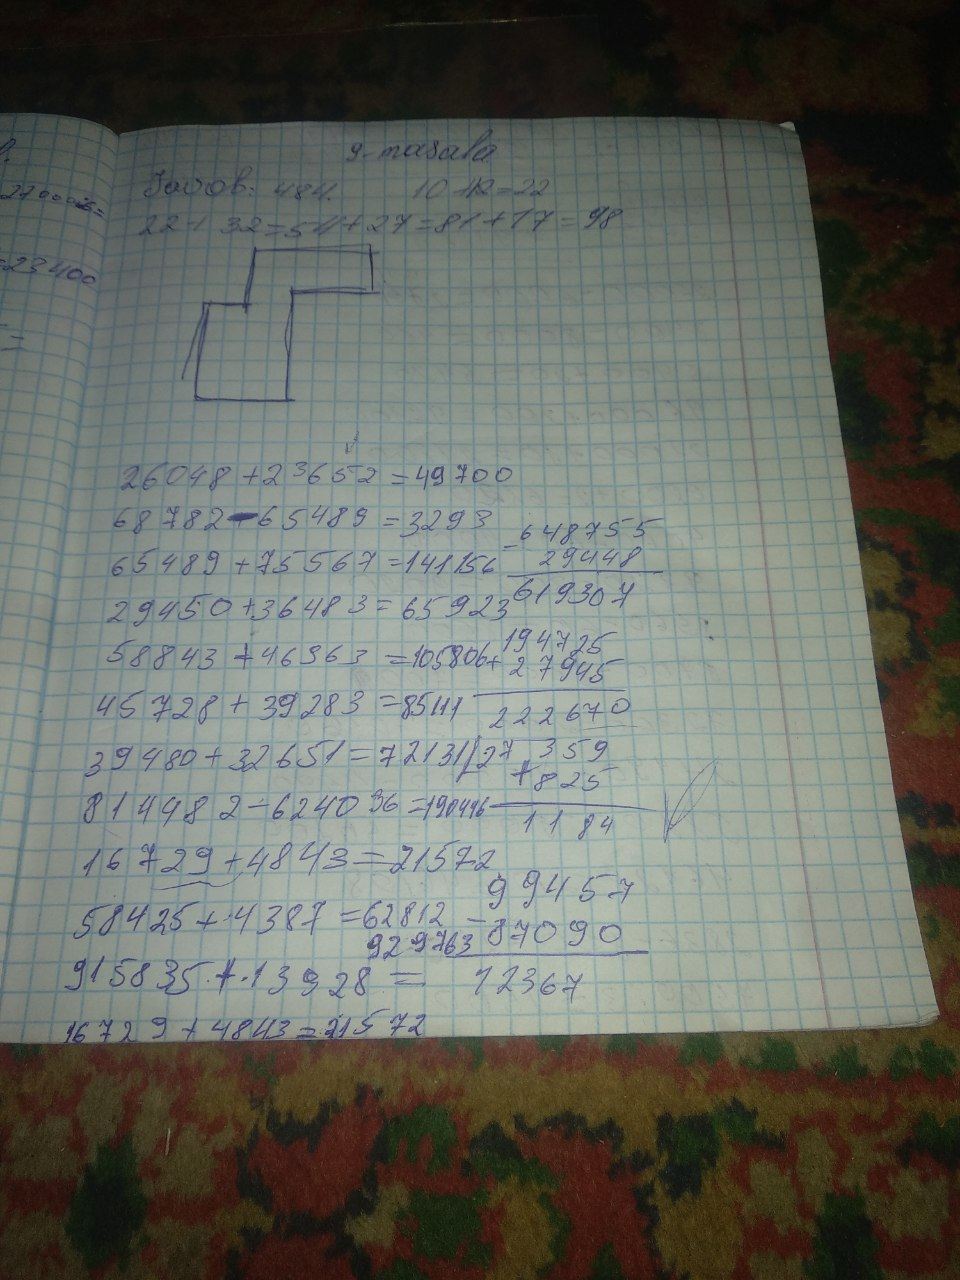 9-masala
Javob: 484. 10+12=22
22+32=54+27=81+17=98
26048+23652=49700
68782-65489=3293
65489+75567=141156
29450+36483=65923
58843+46963=105806
45728+39283=85111
39480+32651=72131
814482-624036=190446
16729+4843=21572
58425+4387=62812
929763
915835+13928=
16729+4843=21572
-648755
29448
619307
194725
+27945
222670
359
+825
1184
99457
-87090
12367
23400